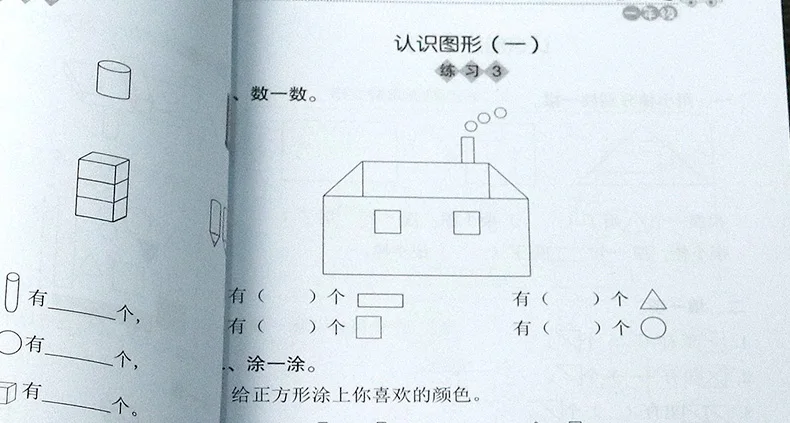 有______个,
有______个,
有______个。
一年级
认识图形(一)
练习3
、数一数。
有( )个
有( )个
有( )个
有( )个
、涂一涂。
给正方形涂上你喜欢的颜色。